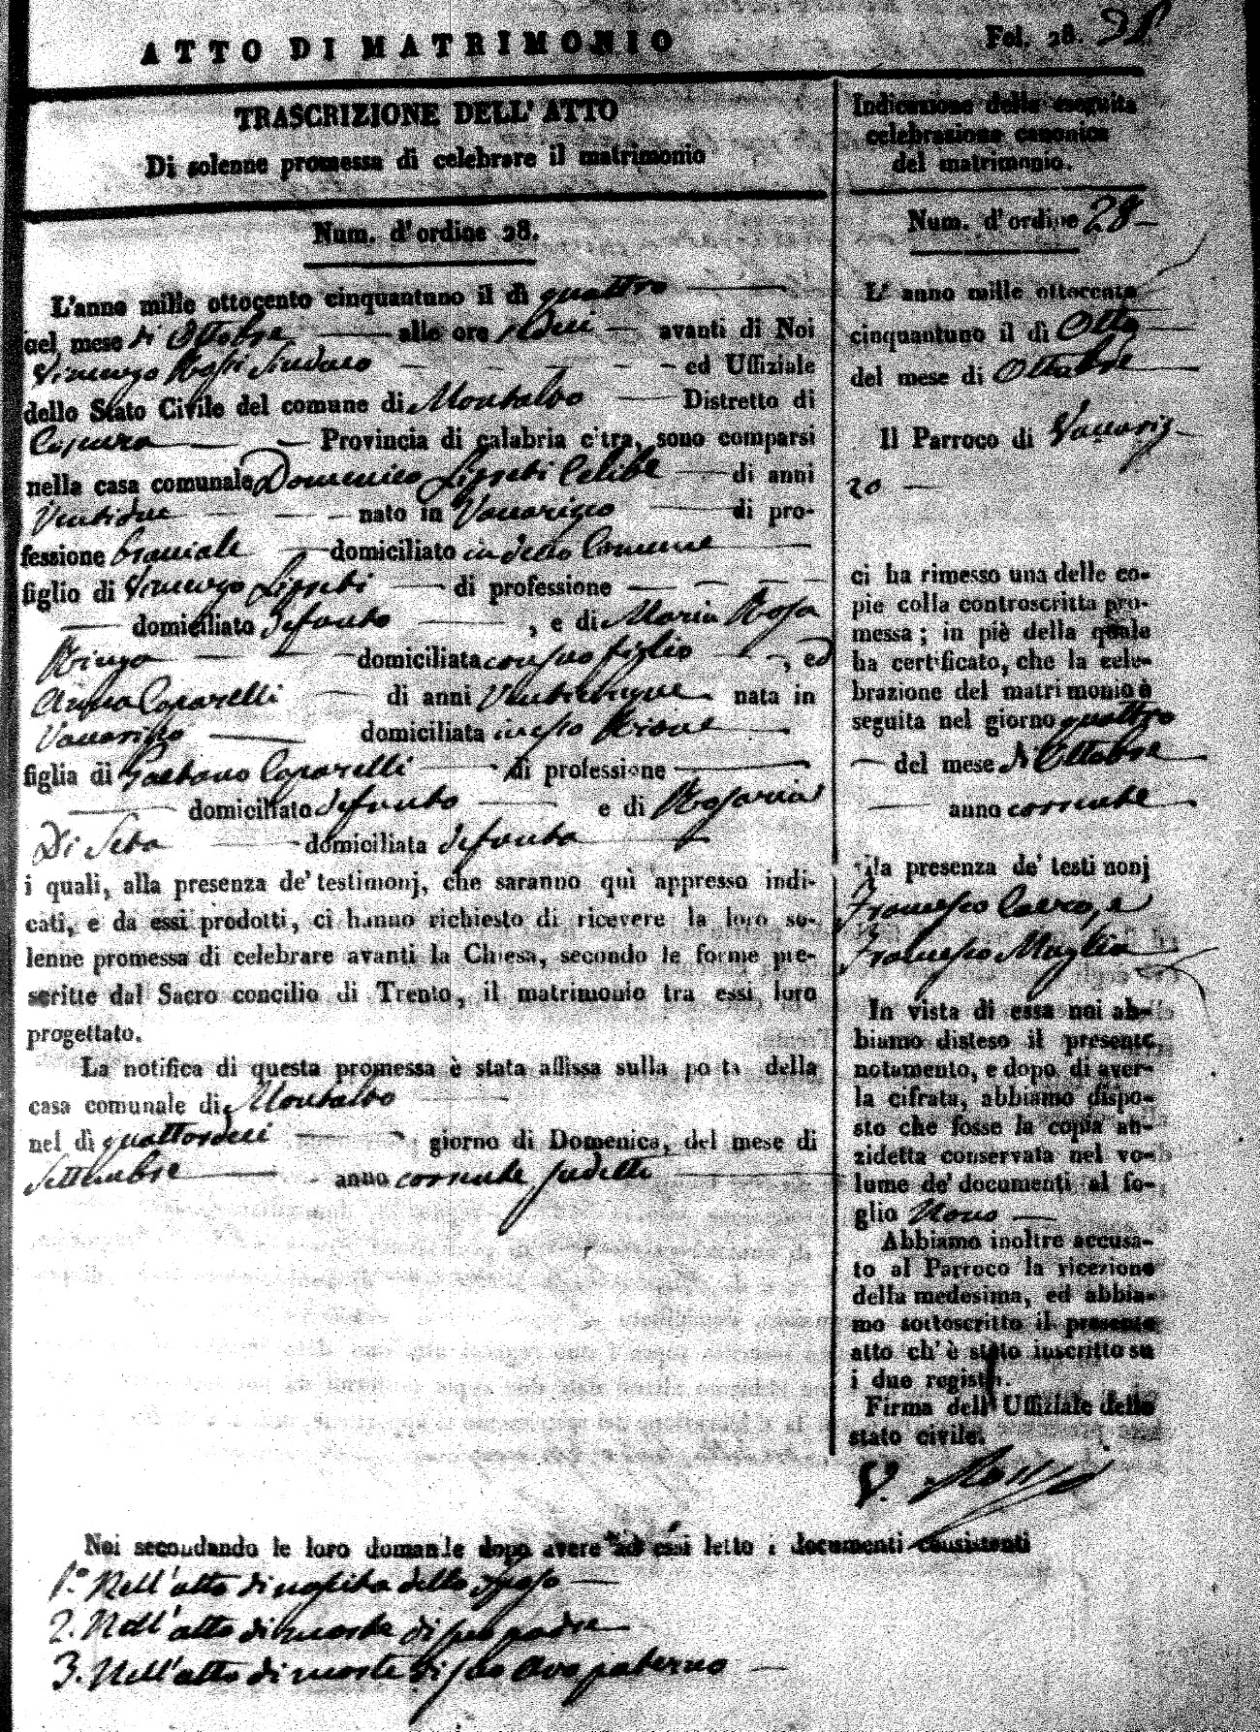 ATTO DI MATRIMONIO
Fol. 28.
TRASCRIZIONE DELL' ATTO
Di solenne promessa di celebrare il matrimonio
Num. d'ordine 28.
L'anno mille ottocento cinquantuno il dì quattro
nel mese di Ottobre alle ore sedici avanti di Noi
Vincenzo Rossi Sindaco ed Uffiziale
dello Stato Civile del comune di Montalto Distretto di
Cosenza Provincia di calabria c'tra, sono comparsi
nella casa comunale Domenico Celibe di anni
Ventidue nato in Vaccarizzo di pro-
fessione bracciale domiciliato in detto Comune
figlio di Vincenzo di professione
domiciliato defonto , e di Maria Rosa
domiciliata con suo figlio , ed
Anna Caparelli di anni Venticinque nata in
Vaccarizzo domiciliata in esso Rione
figlia di Gaetano Caparelli di professione
domiciliato defonto e di Rosaria
Di Seta domiciliata defonta
i quali, alla presenza de' testimonj, che saranno quì appresso indi-
cati, e da essi prodotti, ci hanno richiesto di ricevere la loro so-
lenne promessa di celebrare avanti la Chiesa, secondo le forme pre-
scritte dal Sacro concilio di Trento, il matrimonio tra essi loro
progettato.
La notifica di questa promessa è stata affissa sulla po ta della
casa comunale di Montalto
nel dì quattordeci giorno di Domenica, del mese di
Settembre anno corrente sudetto
Indicazione della eseguita
celebrazione canonica
del matrimonio.
Num. d'ordine 28
L' anno mille ottocento
cinquantuno il dì Otto
del mese di Ottobre
Il Parroco di Vaccariz
zo
ci ha rimesso una delle co-
pie colla controscritta pro-
messa; in piè della quale
ha certificato, che la cele-
brazione del matrimonio è
seguita nel giorno quattro
del mese di Ottobre
anno corrente
alla presenza de' testimonj
Francesco e
Francesco Maglia
In vista di essa noi ab-
biamo disteso il presente
notamento, e dopo di aver-
la cifrata, abbiamo dispo-
sto che fosse la copia an-
zidetta conservata nel vo-
lume de' documenti al fo-
glio Nono
Abbiamo inoltre accusa-
to al Parroco la ricezione
della medesima, ed abbia-
mo sottoscritto il presente
atto ch' è stato iscritto su
i due registri.
Firma dell' Uffiziale dello
stato civile.
V. Rossi
Noi secondando le loro domande dopo avere ad essi letto i documenti consistenti
1.º Nell'atto di nascita dello sposo
2. Nell'atto di morte di suo padre
3. Nell'atto di morte di suo Avo paterno